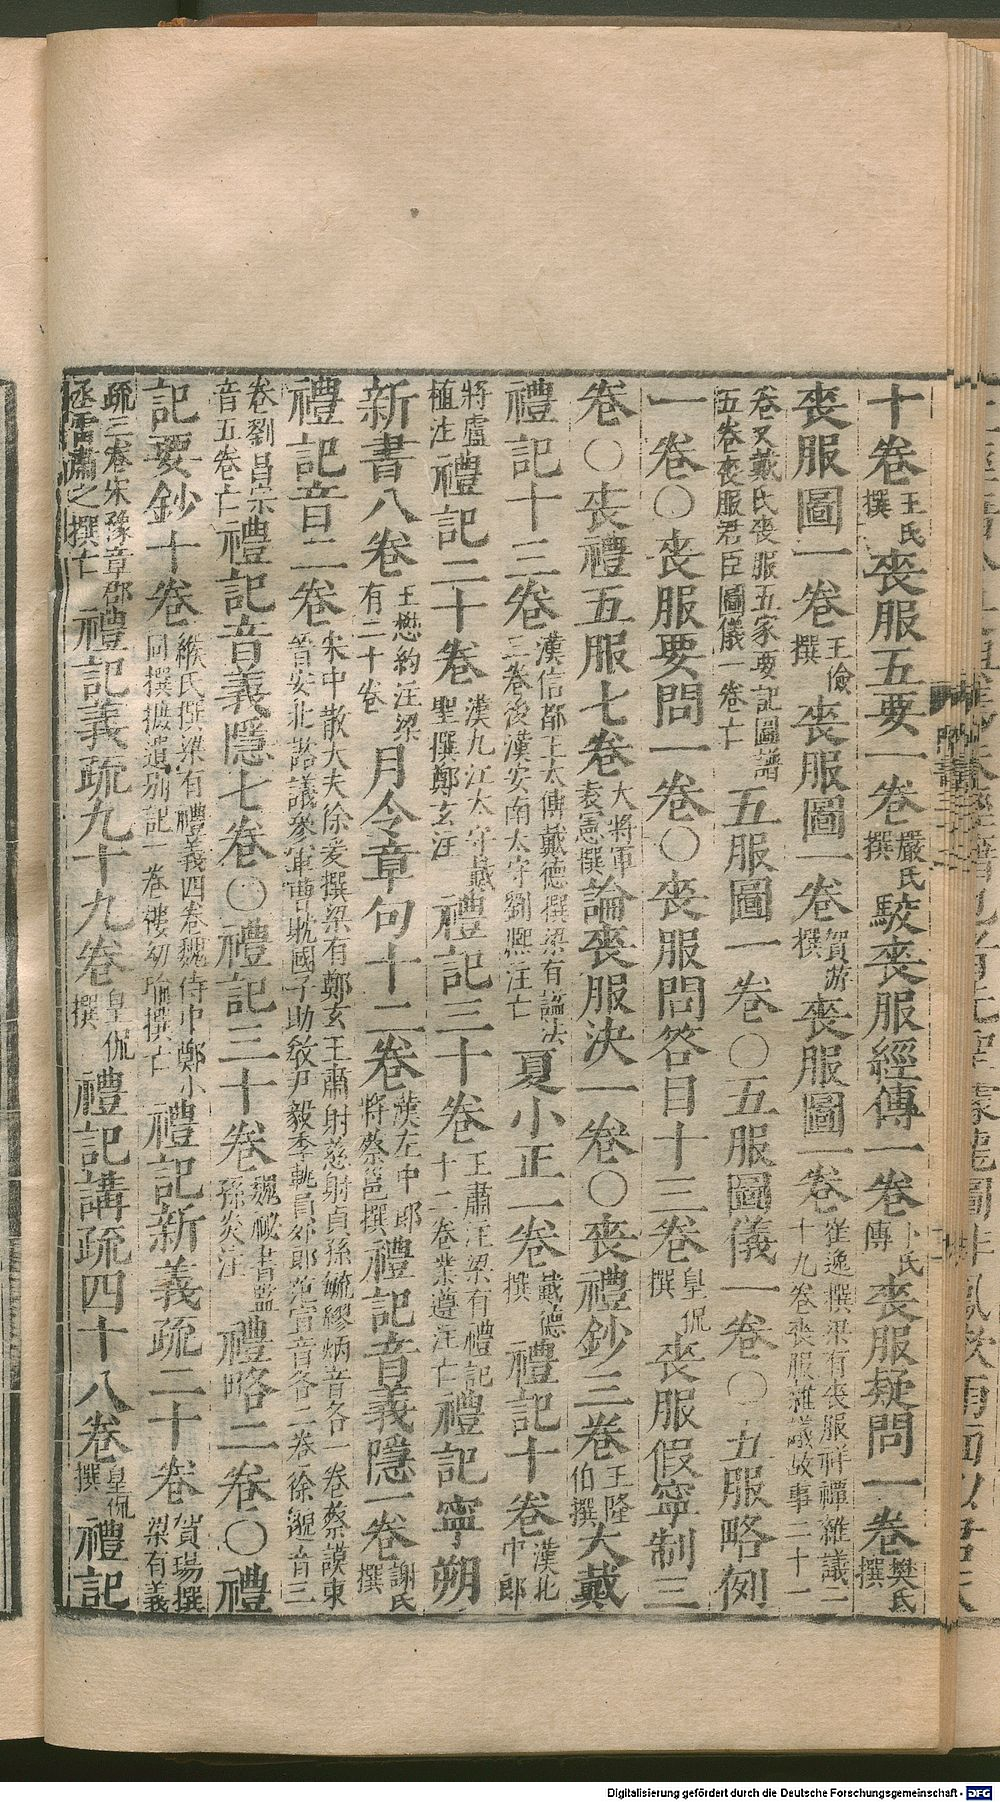 十卷王氏撰喪服五要一卷嚴氏撰駮喪服經傳一卷卜氏傳喪服疑問一卷樊氏撰
喪服圖一卷王儉撰喪服圖一卷賀游撰喪服圖一卷崔逸撰梁有喪服祥禫雜議二十九卷喪服雜議故事二十一
卷又戴氏喪服五家要記圖譜五卷喪服君臣圖儀一卷亡五服圖一卷〇五服圖儀一卷〇五服略例
一卷〇喪服要問一卷〇喪服問答目十三卷皇侃撰喪服假寧制三
卷〇喪禮五服七卷大將軍袁憲撰論喪服決一卷〇喪禮鈔三卷王隆伯撰大戴
禮記十三卷漢信都王太傅戴德撰梁有謚法三卷後漢安南太守劉熙注亡夏小正一卷戴德撰禮記十卷漢北中郎
將盧植注禮記二十卷漢九江太守戴聖撰鄭玄注禮記三十卷王肅注梁有禮記十二卷業遵注亡禮記寧朔
新書八卷王懋約注梁有二十卷月令章句十二卷漢左中郎將蔡邕撰禮記音義隱一卷謝氏撰
禮記音二卷宋中散大夫徐爰撰梁有鄭玄王肅射慈射貞孫毓繆炳音各一卷蔡謨東晉安北諮議參軍曹躭國子助教尹毅李軌員外郎范宣音各二卷徐邈音三
卷劉昌宗音五卷亡禮記音義隱七卷〇禮記三十卷魏秘書監孫炎注禮略二卷〇禮
記要鈔十卷緱氏撰梁有禮義四卷魏侍中鄭小同撰摭遺別記一卷樓幼瑜撰亡禮記新義疏二十卷賀瑒撰梁有義
疏三卷宋豫章郡丞雷肅之撰亡禮記義疏九十九卷皇侃撰禮記講疏四十八卷皇侃撰禮記
Digitalisierung gefördert durch die Deutsche Forschungsgemeinschaft - DFG